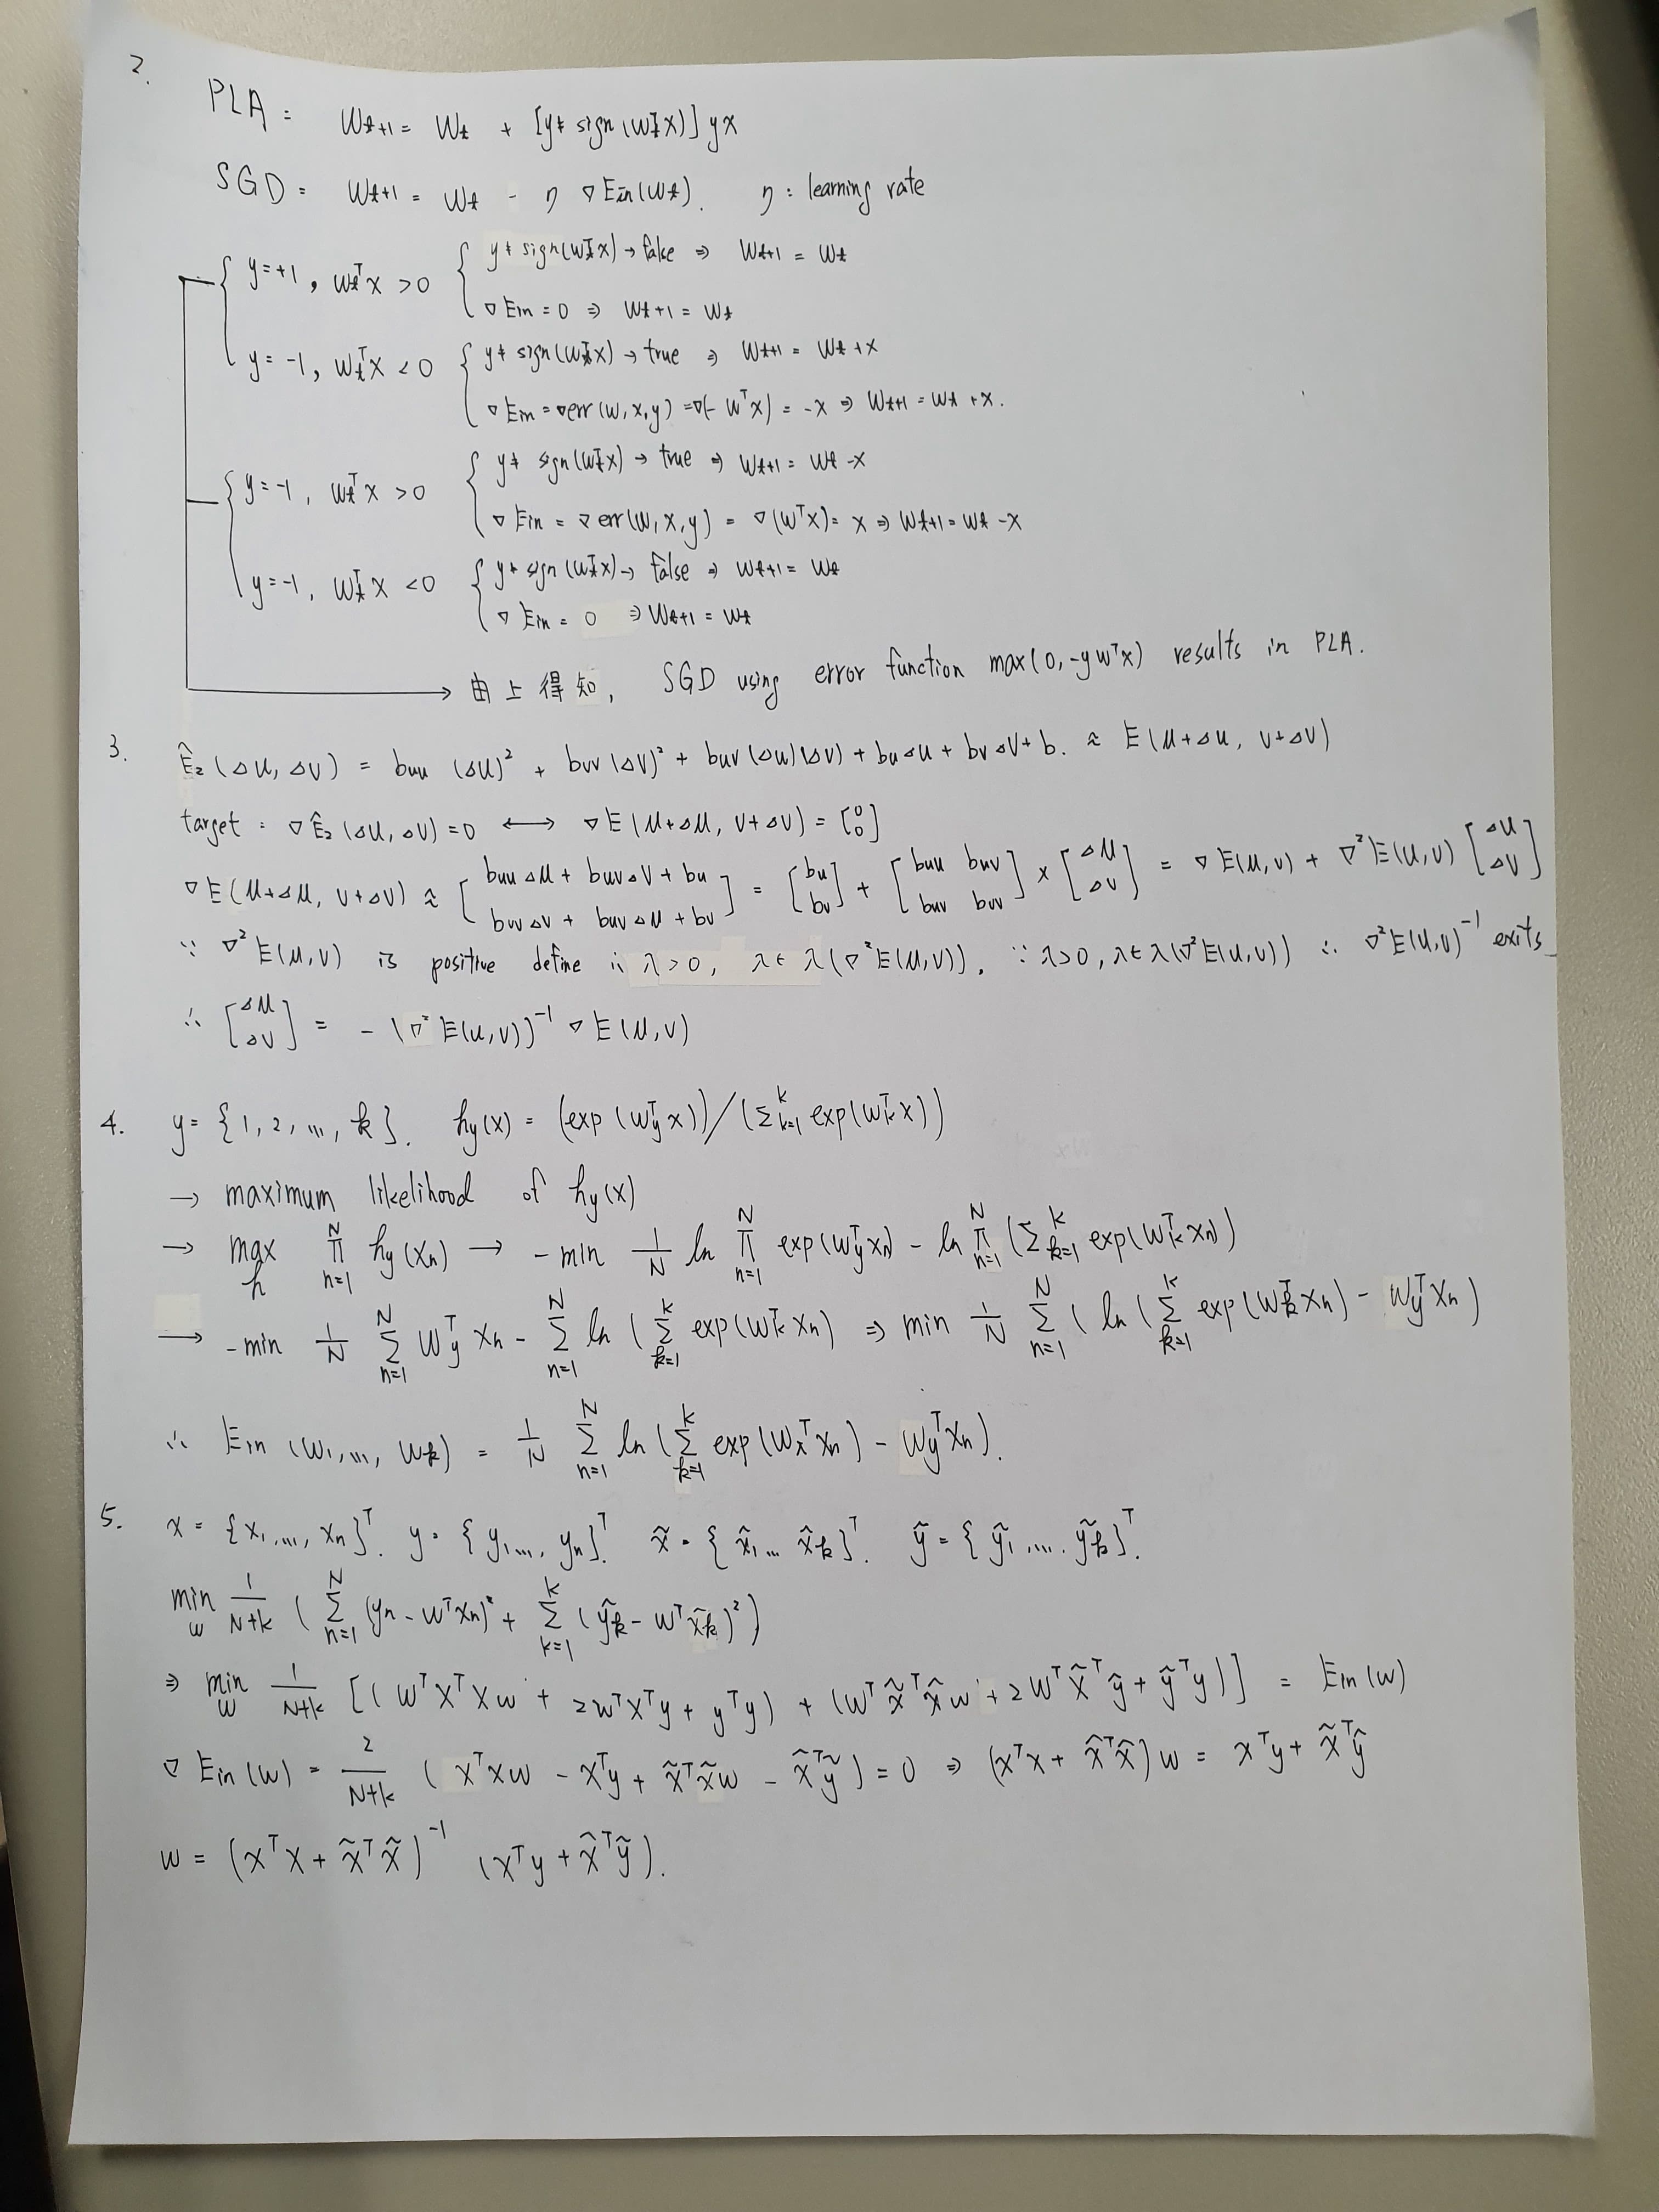 2.
PLA: W_{t+1} = W_t + [y ≠ sign(W_t^T x)] yx
SGD: W_{t+1} = W_t - η ∇Ein(W_t). η: learning rate
y=+1, W_t^T x >0 { y ≠ sign(W_t^T x) → false ⇒ W_{t+1} = W_t
∇Ein = 0 ⇒ W_{t+1} = W_t
y=-1, W_t^T x <0 { y ≠ sign(W_t^T x) → true ⇒ W_{t+1} = W_t + x
∇Ein = ∇err(w, x, y) = ∇(-w^T x) = -x ⇒ W_{t+1} = W_t + x.
y=-1, W_t^T x >0 { y ≠ sign(W_t^T x) → true ⇒ W_{t+1} = W_t - x
∇Ein = ∇err(w, x, y) = ∇(w^T x) = x ⇒ W_{t+1} = W_t - x
y=-1, W_t^T x <0 { y ≠ sign(W_t^T x) → false ⇒ W_{t+1} = W_t
∇Ein = 0 ⇒ W_{t+1} = W_t
→ 由上得知, SGD using error function max(0, -yw^T x) results in PLA.
3. Ê_2(Δu, Δv) = buu (Δu)^2 + bvv (Δv)^2 + buv (Δu)(Δv) + buΔu + bvΔv + b. ≈ E(u+Δu, v+Δv)
target: ∇Ê_2(Δu, Δv) = 0 ⟷ ∇E(u+Δu, v+Δv) = [0 0]
∇E(u+Δu, v+Δv) ≈ [buuΔu + buvΔv + bu ; bvvΔv + buvΔu + bv] = [bu ; bv] + [buu buv ; buv bvv] × [Δu ; Δv] = ∇E(u,v) + ∇²E(u,v) [Δu ; Δv]
∵ ∇²E(u,v) is positive define ∴ λ>0, λ∈λ(∇²E(u,v)). ∵ λ>0, λ∈λ(∇²E(u,v)) ∴ ∇²E(u,v)^{-1} exits
∴ [Δu ; Δv] = -(∇²E(u,v))^{-1} ∇E(u,v)
4. y = {1, 2, ..., k}. hy(x) = (exp(W_y^T x))/(Σ_{k=1}^k exp(W_k^T x))
→ maximum likelihood of hy(x)
→ max_h Π_{n=1}^N hy(xn) → -min 1/N ln Π_{n=1}^N exp(W_y^T xn) - ln Π_{n=1}^N (Σ_{k=1}^k exp(W_k^T xn))
→ -min 1/N Σ_{n=1}^N W_y^T xn - Σ_{n=1}^N ln(Σ_{k=1}^k exp(W_k^T xn) ⇒ min 1/N Σ_{n=1}^N (ln(Σ_{k=1}^k exp(W_k^T xn) - W_y^T xn)
∴ Ein(w1, ..., wk) = 1/N Σ_{n=1}^N ln(Σ_{k=1}^k exp(W_k^T xn) - W_y^T xn).
5. x = {x1, ..., xn}^T. y = {y1, ..., yn}^T. x̃ = {x̃1 ... x̃k}^T. ỹ = {ỹ1, ..., ỹk}^T.
min_w 1/(N+k) (Σ_{n=1}^N (yn - w^T xn)² + Σ_{k=1}^k (ỹk - w^T x̃k)²)
⇒ min_w 1/(N+k) [(w^T x^T x w + 2w^T x^T y + y^T y) + (w^T x̃^T x̃ w + 2w^T x̃^T ỹ + ỹ^T y)] = Ein(w)
∇Ein(w) = 2/(N+k) (x^T x w - x^T y + x̃^T x̃ w - x̃^T ỹ) = 0 ⇒ (x^T x + x̃^T x̃) w = x^T y + x̃^T ỹ
w = (x^T x + x̃^T x̃)^{-1} (x^T y + x̃^T ỹ).